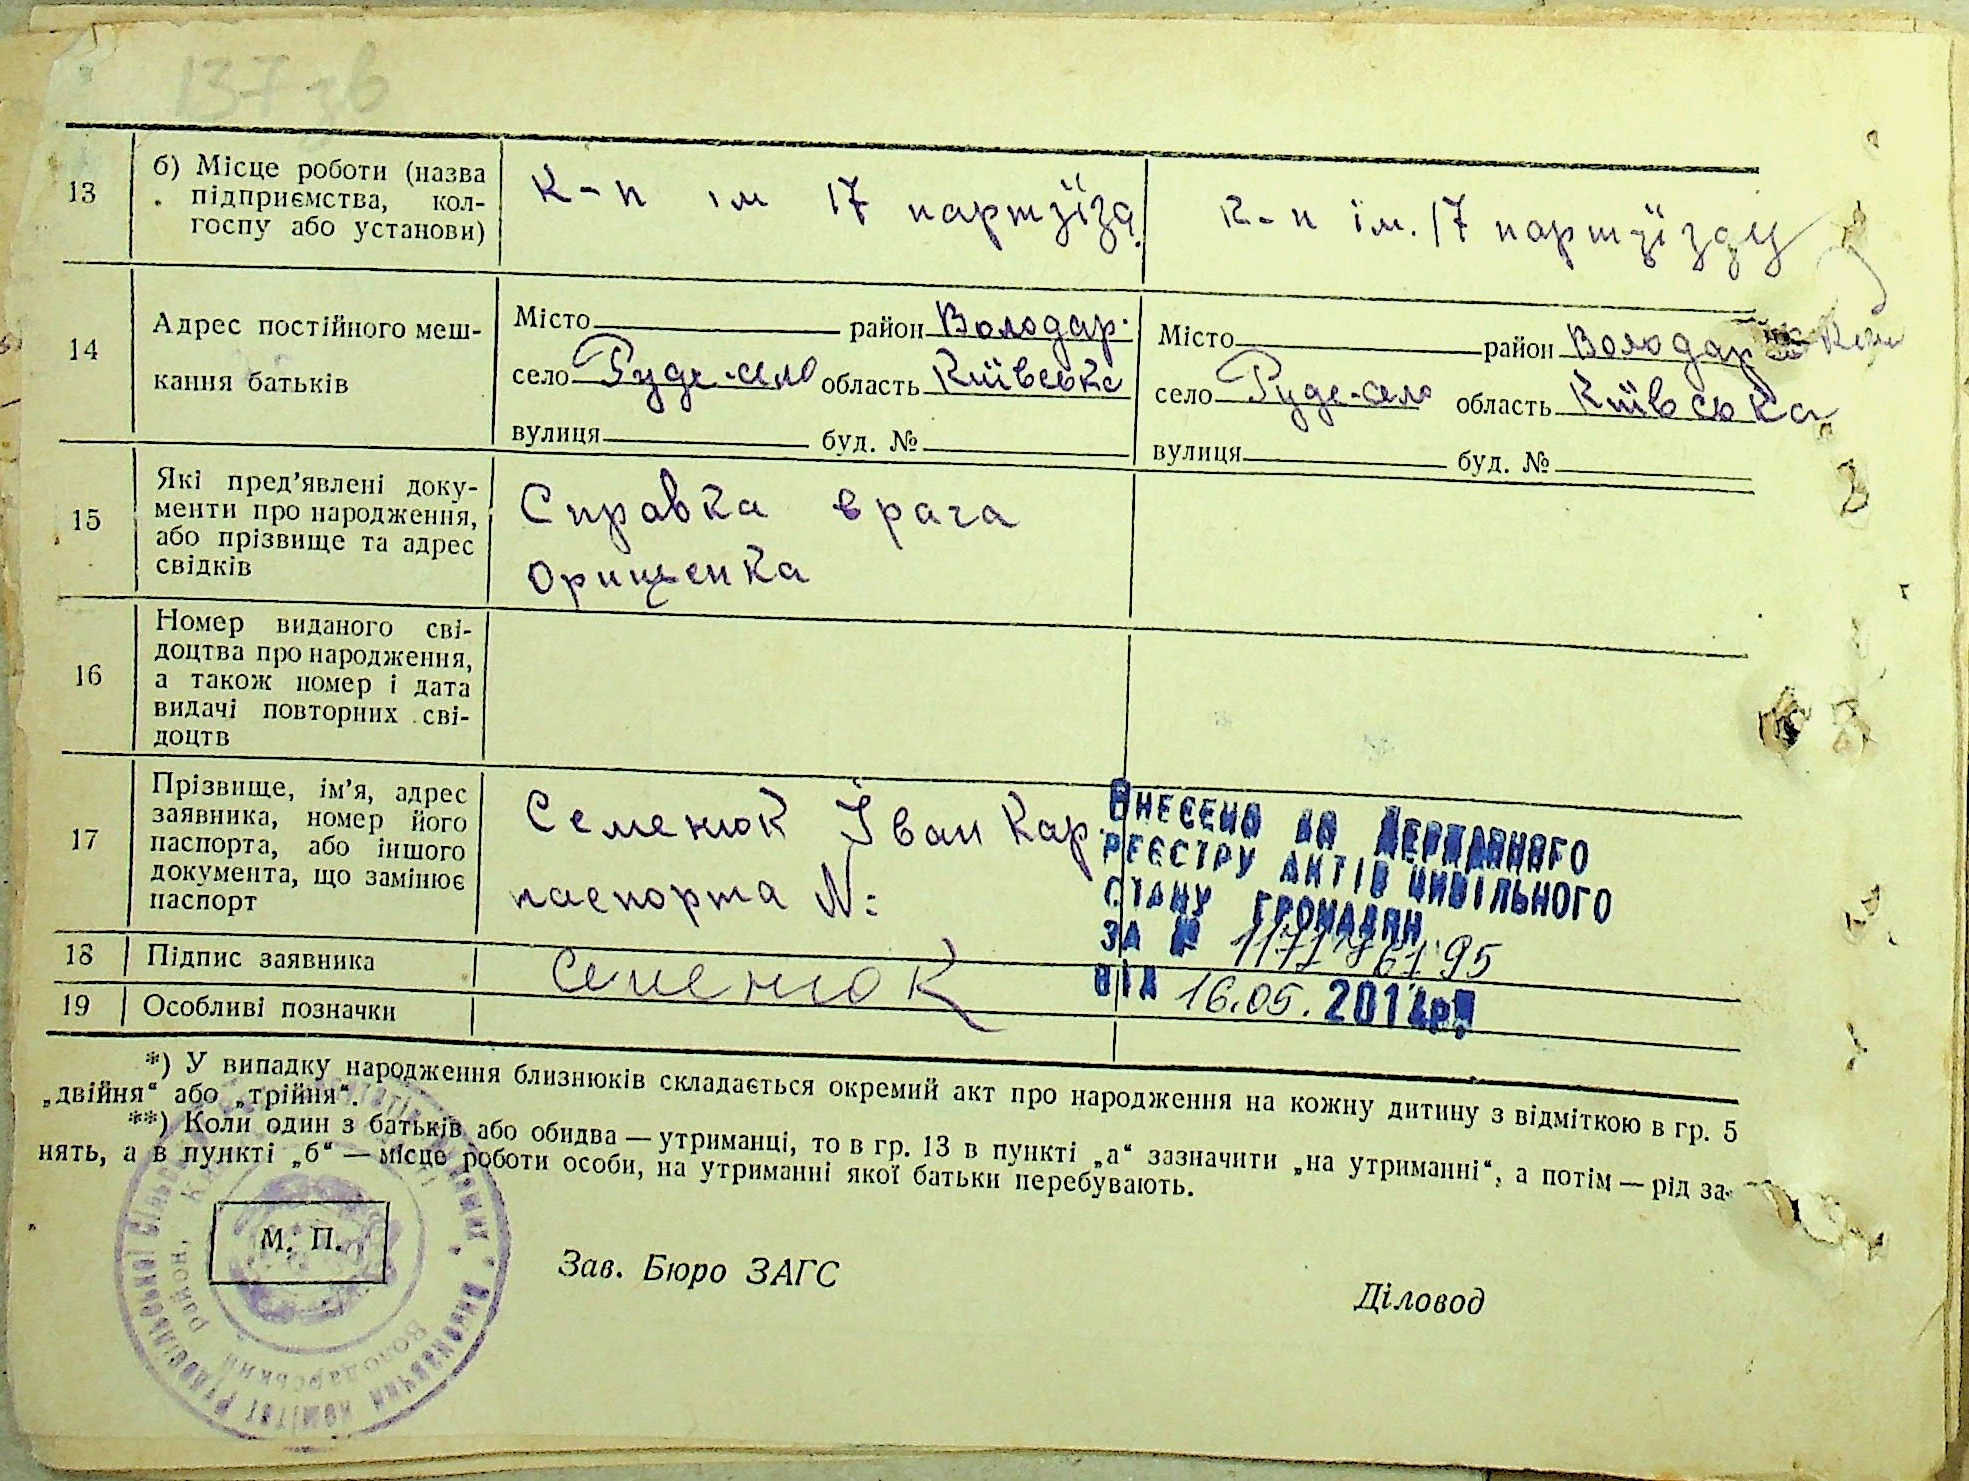 137 зв
13
б) Місце роботи (назва
підприємства, кол-
госпу або установи)
к-п ім 17 партзїзд
к-п ім. 17 партзїзду
14
Адрес постійного меш-
кання батьків
Місто район Володар.
село Руде-село область Київська
вулиця буд. №
Місто район Володар
село Руде-село область Київська
вулиця буд. №
15
Які пред'явлені доку-
менти про народження,
або прізвище та адрес
свідків
Справка врача
Орищенка
16
Номер виданого сві-
доцтва про народження,
а також номер і дата
видачі повторних сві-
доцтв
17
Прізвище, ім'я, адрес
заявника, номер його
паспорта, або іншого
документа, що замінює
паспорт
Семенюк Іван Кар.
паспорта №:
Внесено до Державного
реєстру актів цивільного
стану громадян
за №
від 16.05. 2012р.
18
Підпис заявника
Семенюк
19
Особливі позначки
*) У випадку народження близнюків складається окремий акт про народження на кожну дитину з відміткою в гр. 5
„двійня“ або „трійня“.
**) Коли один з батьків або обидва — утриманці, то в гр. 13 в пункті „а“ зазначити „на утриманні“, а потім — рід за-
нять, а в пункті „б“ — місце роботи особи, на утриманні якої батьки перебувають.
М. П.
Зав. Бюро ЗАГС
Діловод